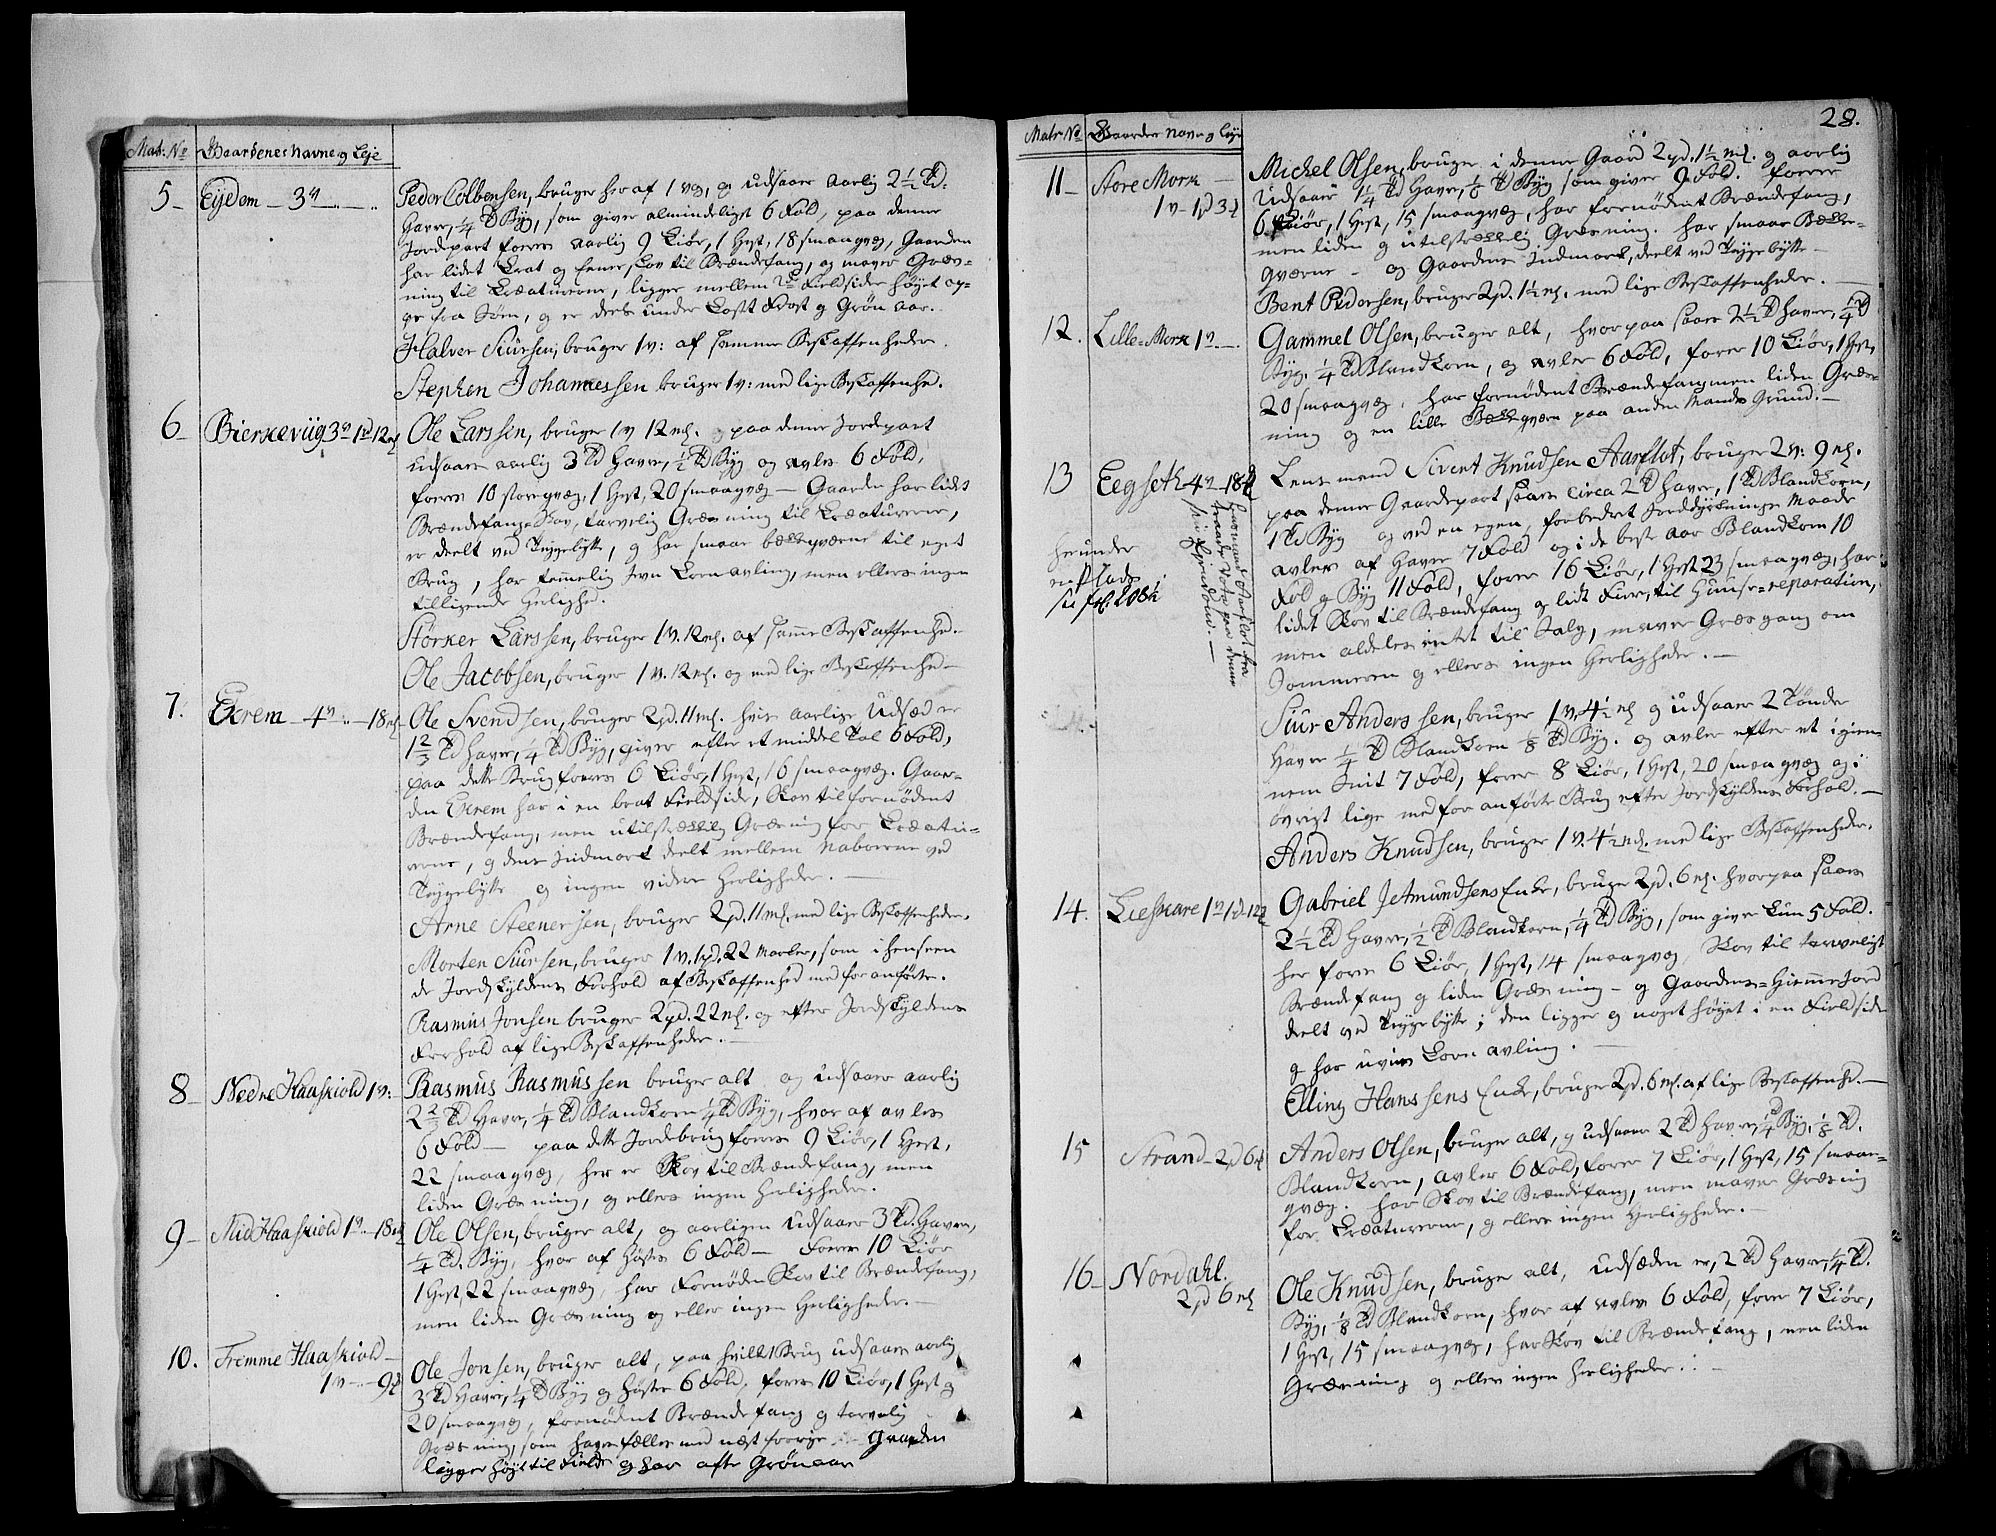 Matr. No Gaardenes navne og Leje
5 Eijdem 3 v
Peder Colbensen, bruger her af 1 vog, og udsaaer aarlig 2 1/2 Td.
Haver, 1/4 Td Byg, som giver almindeligst 6 Fold, paa denne
Jordpart foeres aarlig 9 Kiör, 1 Hest, 18 smaaqvæg, Gaarden
har lidet Krat og Feneskov til Brændefang, og maver Græs-
ning til Creaturerne, ligger mellem 2de Fieldsider høyt op-
pe fra Søen, og er deels under kast Frost og Grøn Aar.
Halver Siursen, bruger 1 v: af samme Beskaffenheder.
Stephen Johannessen bruger 1 v: med lige Beskaffenhed.
6 Bierkeviig 3 v 1 pd 12 mk
Ole Larssen, bruger 1 v 12 mk. paa denne Jordpart
udsaaes aarlig 3 Td Haver, 1/2 Td Byg og avles 6 Fold,
foeres 10 storqvæg, 1 Hest, 20 smaaqvæg — Gaarden har lidet
Brændefangs Skov, tarvelig Græsning til Creaturerne,
er deelt ved Teigebytte, og har smaae bekkeqværne til eget
Brug, har temmelig Jevn Kornavling, men ellers ingen
tilliggende Herlighed.
Storker Larssen, bruger 1 v. 12 mk. af samme Beskaffenhed.
Ole Jacobsen, bruger 1 v. 12 mk. og med lige Beskaffenhed —
7. Ekrem 4 v 18 mk
Ole Svendsen, bruger 2 pd. 11 mk. hvis aarlige Udsæd er
1 2/3 Td Haver, 1/4 Td Byg, giver efter et middel Tal 6 Fold,
paa dette Brug foeres 6 Kiör, 1 Hest, 16 smaaqvæg. Gaar-
den Ekrem har i en brat Fieldside, Skov til fornödent
Brændefang, men utilstrekkelig Græsning for Creatu-
rerne, og dens Indmark deelt mellem Naboerne ved
Teigebytte og ingen videre Herligheder. —
Arne Steenersen, bruger 2 pd. 11 mk. med lige Beskaffenheder.
Morten Siursen, bruger 1 v. 1 pd. 22 Marker, som i henseen
de Jordskyldens Forhold af Beskaffenhed med for anförte.
Rasmus Jonsen bruger 2 pd. 22 mk. og efter Jordskyldens
Forhold af lige Beskaffenheder. —
8 Nedre Haaskiold 1 v:
Rasmus Rasmussen bruger alt og udsaaer aarlig
2 2/3 Td Haver, 1/4 Td Blandkorn 1/4 Td Byg, hvor af avles
6 Fold — paa dette Jordebrug foeres 9 Kiör, 1 Hest,
22 smaaqvæg, her er Skov til Brændefang, men
liden Græsning, og ellers ingen Herligheder.
9 Mid Haaskiold 1 v. 18 mk
Ole Olsen, bruger alt, og aarligen udsaaer 3 Td. Haver,
1/4 Td. Byg, hvor af høstes 6 Fold — Foeres 10 Kiör
1 Hest, 22 smaaqvæg, har Fornøden Skov til Brændefang,
men liden Græsning og ellers ingen Herligheder. —
10. Fremme Haaskiold
1 v 9 mk
Ole Jonsen, bruger alt, paa hvilket Brug udsaaes aarlig
3 Td Haver, 1/4 Td Byg og høstes 6 Fold. foeres 10 Kiör, 1 Hest og
20 smaaqvæg, fornødent Brændefang og tarvelig
Græsning, som haves fælles med næst forrige Gaarden
ligger høyt til Fields og har ofte Grönaar
28.
Matr No Gaardens navn og Leje
11 Store Mork
1 v 1 pd 3 mk
Michel Olsen, bruger i denne Gaard 2 pd. 1 1/2 mk. og aarlig
Udsaaer 1 1/4 Td Haver, 1/8 Td Byg som giver 9 Fold. foerer
6 Kiör, 1 Hest, 15 smaaqvæg, har fornødent Brændefang,
men liden og utilstrekkelig Græsning. har smaae Bekke-
qværne — og Gaardens Indmark, deelt ved Teigebytte —
Bent Pedersen, bruger 2 pd. 1 1/2 mk. med lige Beskaffenheder. —
12. Lille Mork 1 v
Gammel Olsen, bruger alt, hvorpaa saaes 2 1/2 Td Haver, 1/4 Td
Byg, 1/4 Td Blandkorn, og avles 6 Fold, foerer 10 Kiör, 1 Hest,
20 smaaqvæg, har fornødent Brændefang men liden Græs-
ning og en lille Bekkeqvern paa anden Mands Grund. —
13 Eegseth 4 v 18 mk
herunder
en Plads
Lensmand Sivert Knudsen Aarflot, bruger 2 v: 9 mk.
paa denne Gaardepart saaes circa 2 Td Haver, 1 Td Blandkorn,
1 Td Byg og ved en egen, forbedret Jorddyrknings Maade
avles af Haver 7 Fold og i de beste Aar Blandkorn 10
Fold og Byg 11 Fold, foerer 16 Kiör, 1 Hest 23 smaaqvæg, har
lidet Skov til Brændefang og lidt Fure, til Huuse-reparation,
men aldeles intet til Salg, maver Græsgang om
Sommeren og ellers ingen Herligheder. —
Siur Anderssen, bruger 1 v. 4 1/2 mk og udsaaer 2 Tönder
Haver 1/4 Td Blandkorn 1/8 Td Byg. og avler efter et igien-
nem Snit 7 Fold, foerer 8 Kiör, 1 Hest, 20 smaaqvæg og i
övrigt lige med for anførte Brug efter Jordskyldens Forhold. —
Anders Knudsen, bruger 1 v. 4 1/2 mk. med lige Beskaffenheder.
14. Lieskare 1 v 1 pd 12 mk
Gabriel JetmundsensEnke, bruger 2 pd. 6 mk. hvorpaa saaes
2 1/2 Td Haver, 1/2 Td Blandkorn, 1/4 Td Byg, som giver kun 5 Fold.
her foeres 6 Kiör, 1 Hest, 14 smaaqvæg, Skov til tarveligst
Brændefang og liden Græsning — og Gaardens Hiemme Jord
deelt ved Teigebytte; den ligger og noget høyt i en Fieldside
og har uvis Kornavling. —
Elling Hanssens Enke, bruger 2 pd. 6 mk. af lige Beskaffenhed. —
15 Strand 2 pd 6 mk
Anders Olsen, bruger alt, og udsaaer 2 Td Haver, 1/4 Td Byg, 1/8 Td.
Blandkorn, avler 6 Fold, foerer 7 Kiör, 1 Hest, 15 smaae-
qvæg. har Skov til Brændefang, men maver Græsning
for Creaturerne, og ellers ingen Herligheder. —
16 Nordahl.
2 pd 6 mk
Ole Knudsen, bruger alt, Udsæden er, 2 Td Haver, 1/4 Td.
Byg, 1/8 Td Blandkorn, hvor af avles 6 Fold, foerer 7 Kiör,
1 Hest, 15 smaaqvæg, har Skov til Brændefang, men liden
Græsning og ellers ingen Herligheder. —